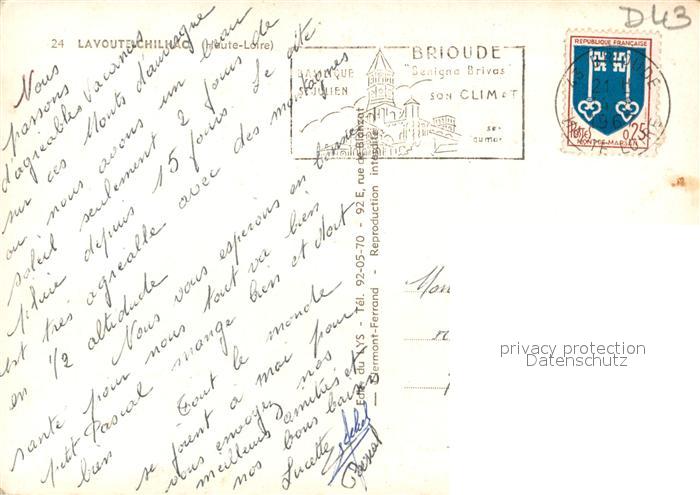 24 LAVOUTE-CHILHAC (Haute-Loire)
D43
BRIOUDE
"Benigna Brivas"
BASILIQUE
St JULIEN
SON CLIMAT
BRIOUDE
21
HTE LOIRE
REPUBLIQUE FRANÇAISE
POSTES
0,25
MONT-DE-MARSAN
Nous
passons
d'agréables vacances
sur ces Monts d'auvergne
ou nous avons un beau
soleil seulement 2 jours de
pluie depuis 15 jours. Le gite
est très agréable avec des
en 1/2 altidude
Nous vous esperons en bonne
santé pour nous tout va bien
petit Pascal mange bien et dort
bien
Tout le monde
se joient a moi pour
vous envoyez nos
meilleurs amitiés et
nos bons baisers
Lucette
Michel
Pascal
Edit. du LYS - Tél. 92-05-70 - 92 E, rue de Blanzat
Clermont-Ferrand - Reproduction interdite
privacy protection
Datenschutz